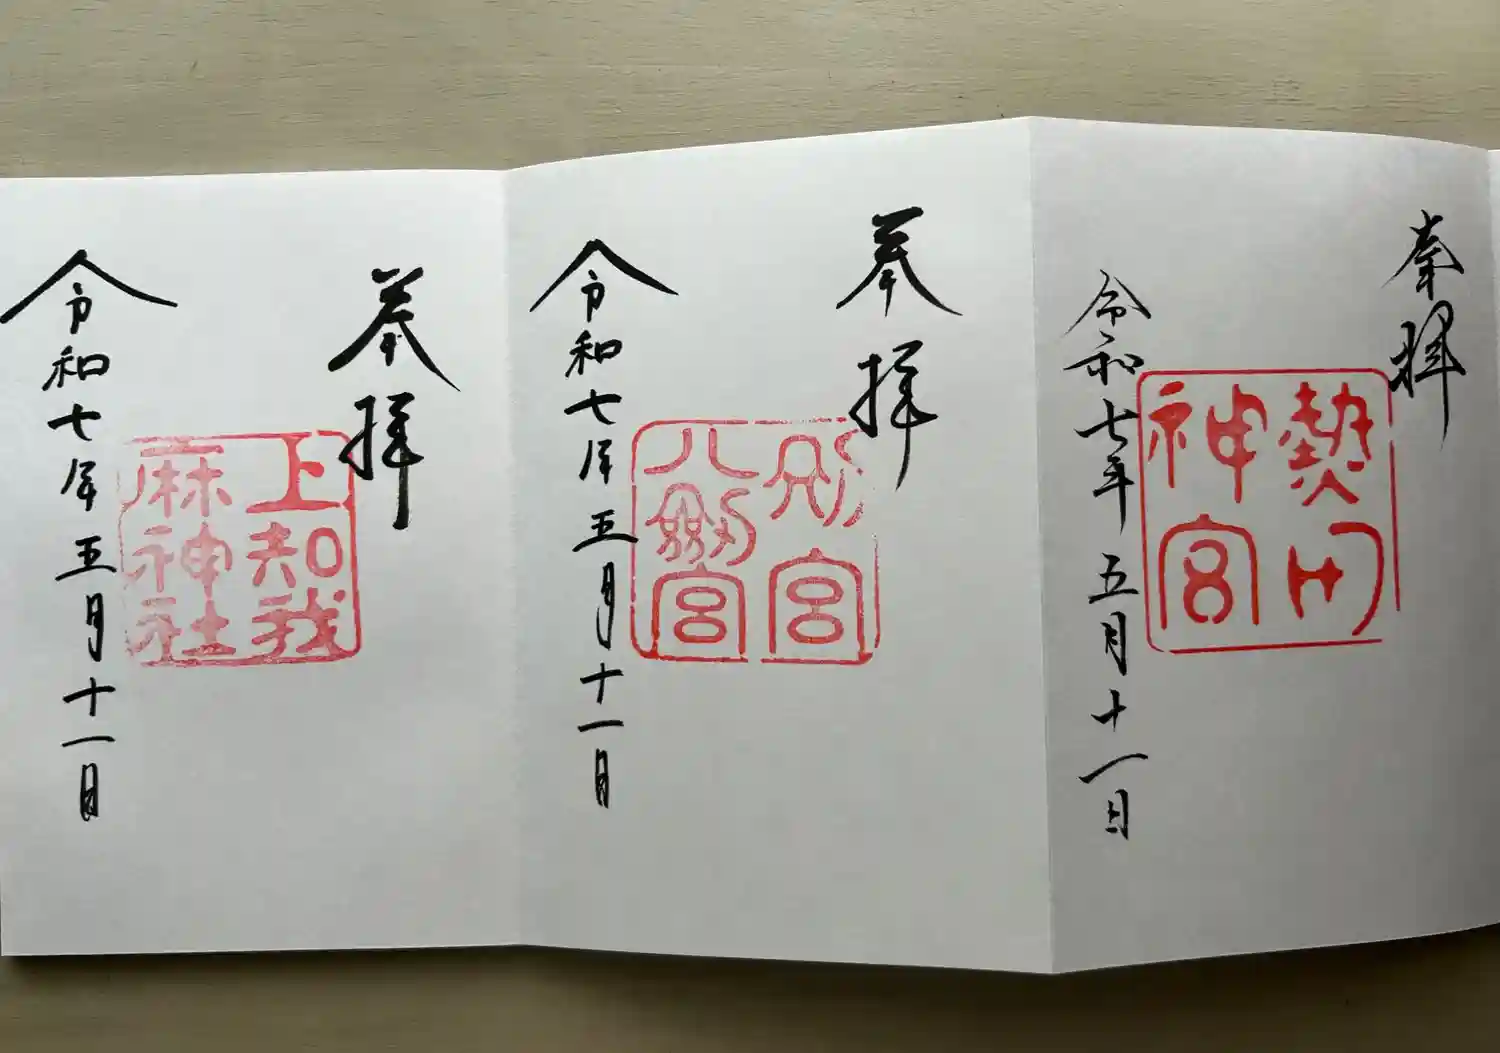 奉拝
熱田
神宮
令和七年五月十一日
奉拝
別宮
八剱宮
令和七年五月十一日
奉拝
上知我
麻神社
令和七年五月十一日